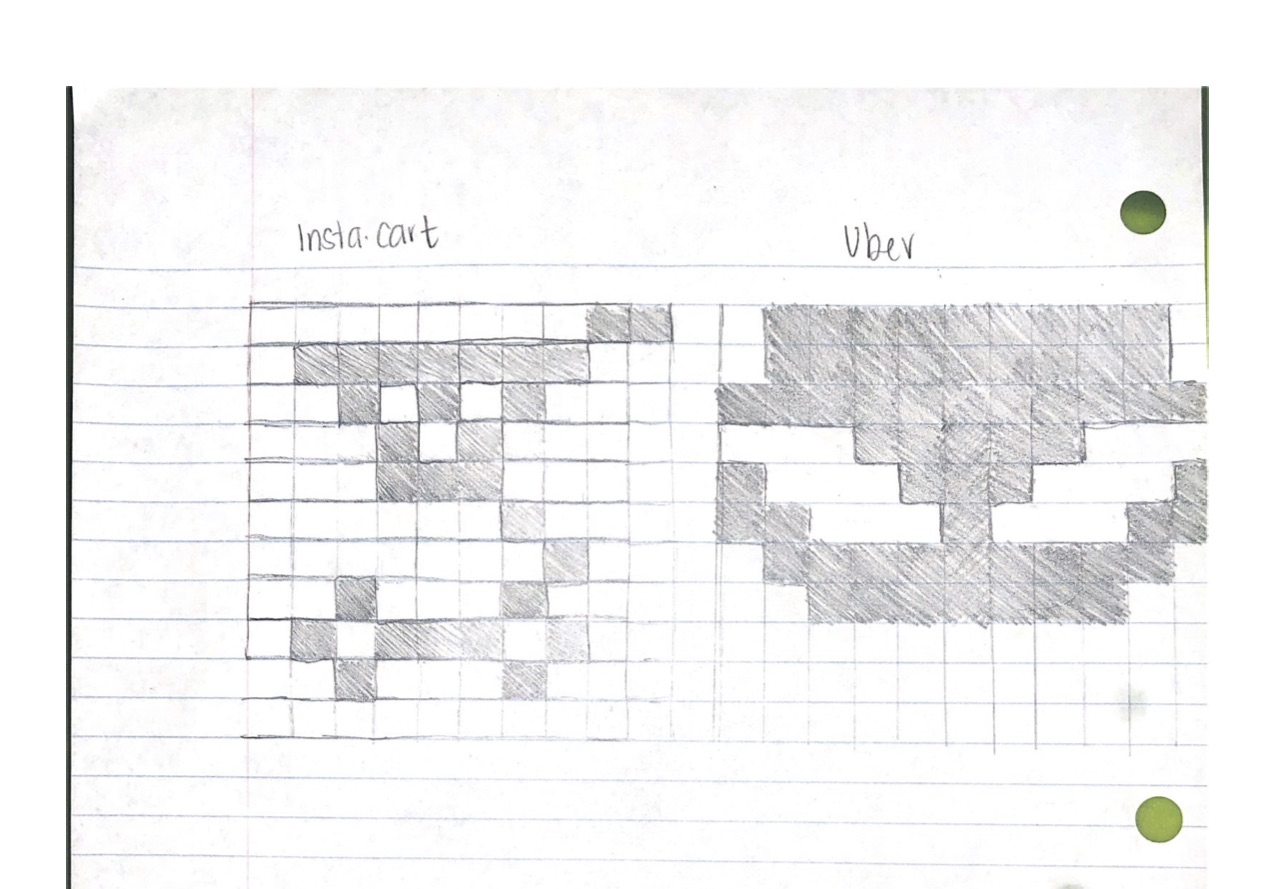 Insta.cart
Uber